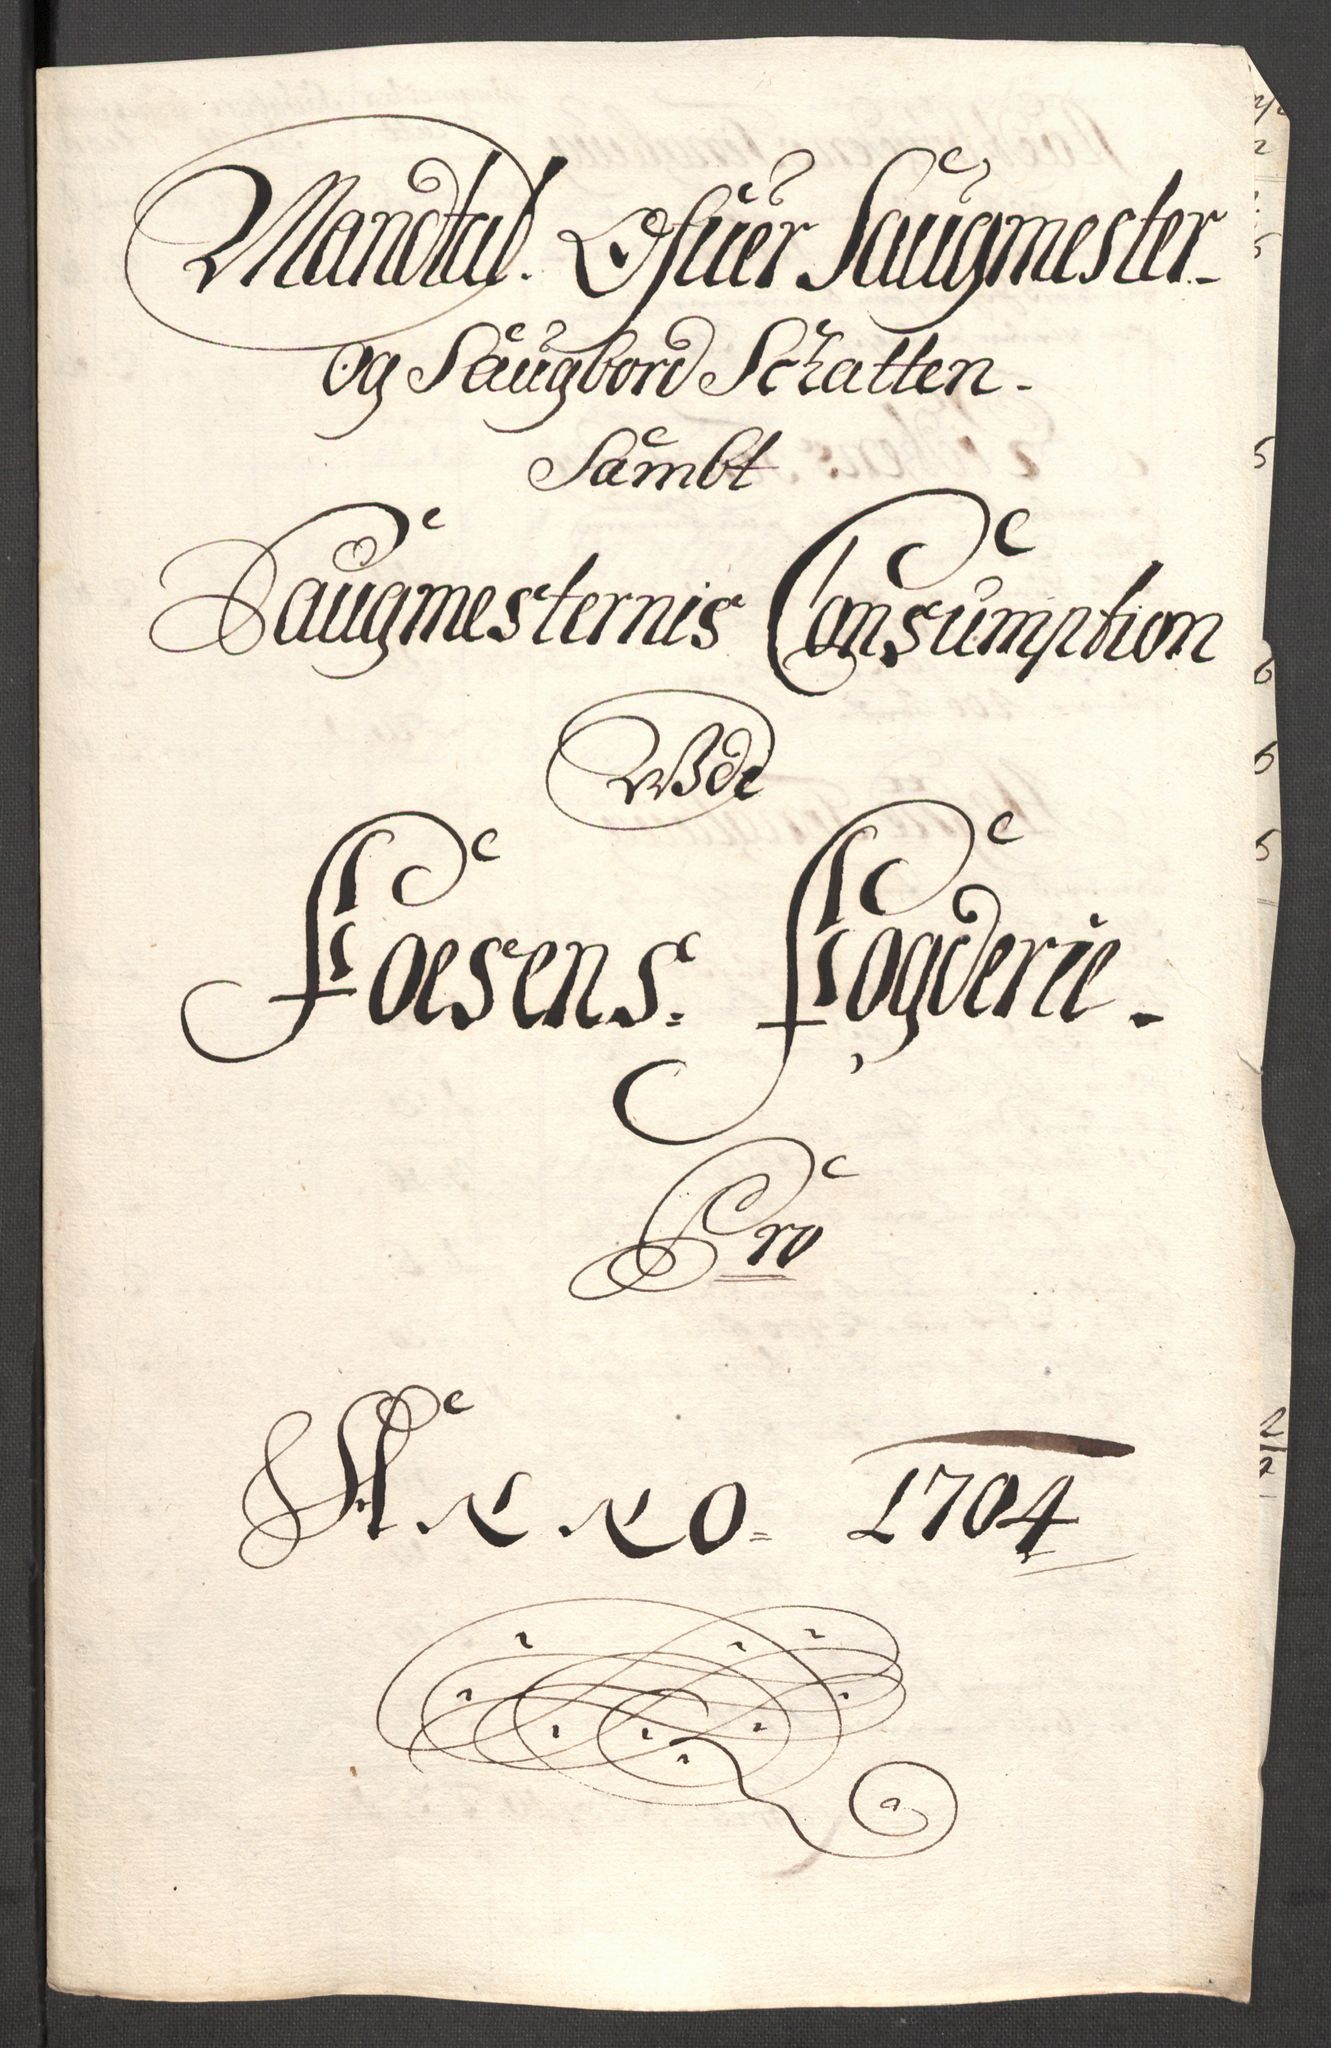 Mandtal. Ofuer Saugmester-
og Saugbord Schatten-
Sambt
Saugmesternis Consumption
Udj
Foesens. Fogderie.
Pro
Anno 1704